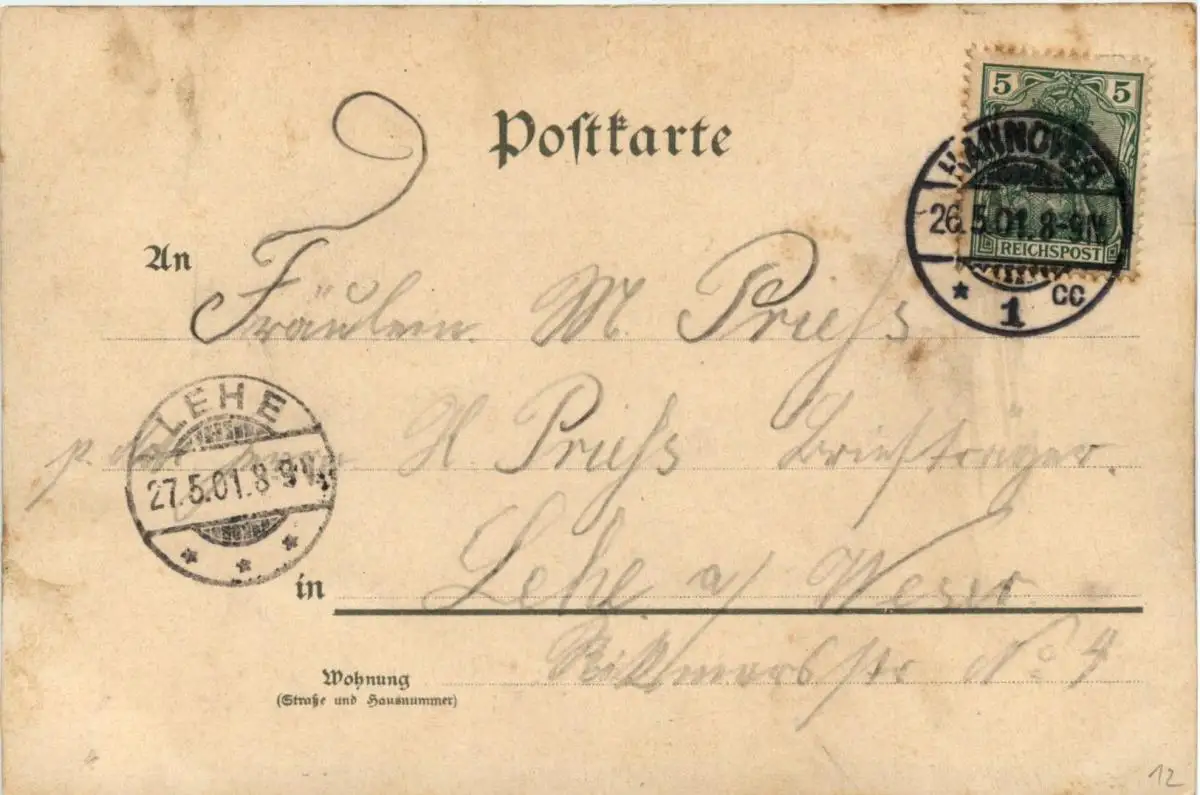 Postkarte
5 5
REICHSPOST
HANNOVER
26.5.01.8-9N.
* 1 CC
An
Fräulein M. Priess
LEHE
27.5.01.8-9N.
* * *
H. Priess Briefträger.
in Lehe a/ Weser.
Wohnung
(Straße und Hausnummer)
Rikmersstr No 4
12